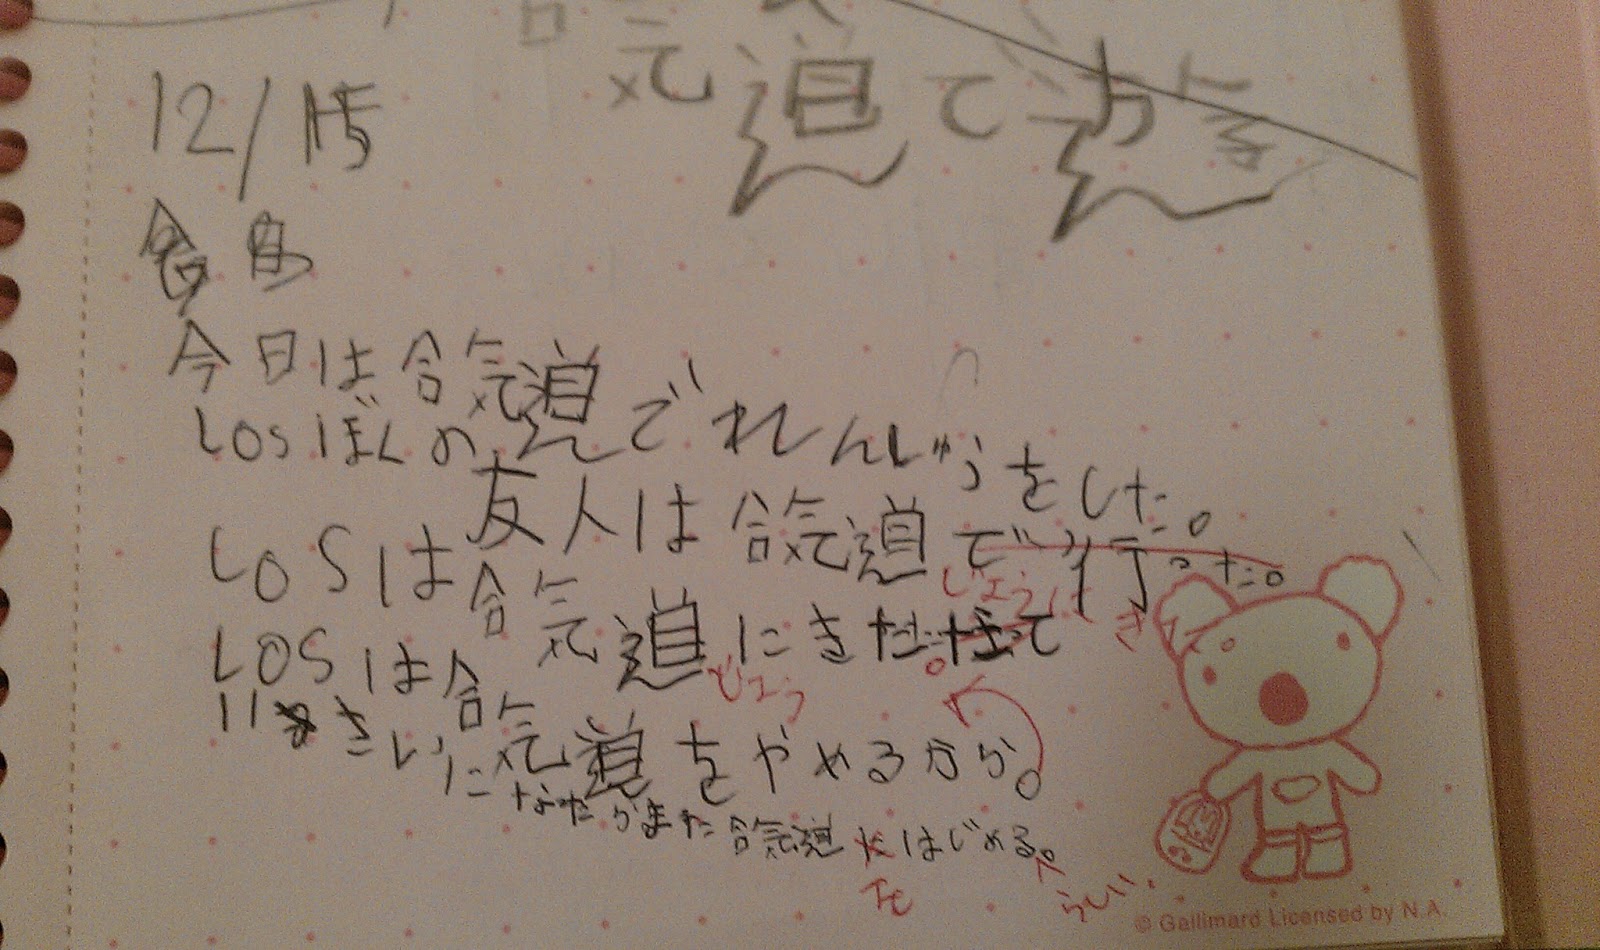 合気道で
12/15
今日は合気道でれんしゅうをした。
LOSぼくの友人は合気道で行った。
じょうに
LOSは合気道にきた。
きた。
じょう
LOSは合気道をやめるから。
11さいになたらまた合気道をはじめる。
らしい。
© Gallimard Licensed by N.A.